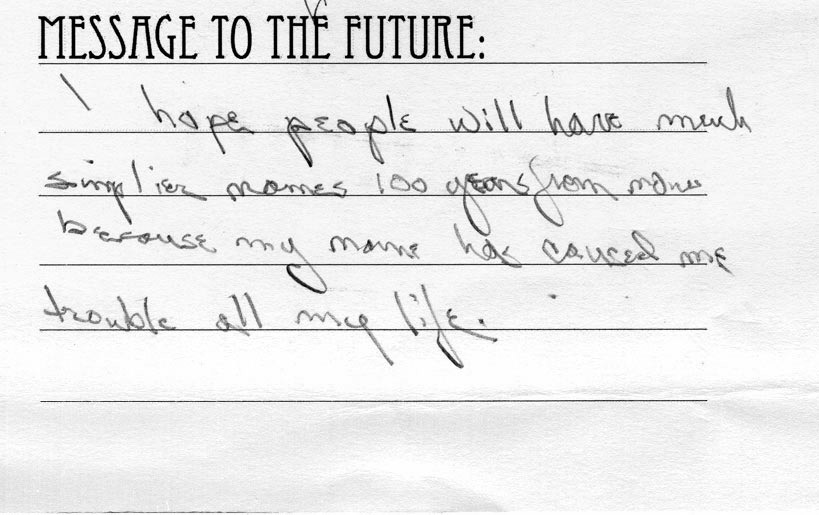 MESSAGE TO THE FUTURE:
I hope people will have much
simplier names 100 years from now
because my name has caused me
trouble all my life.